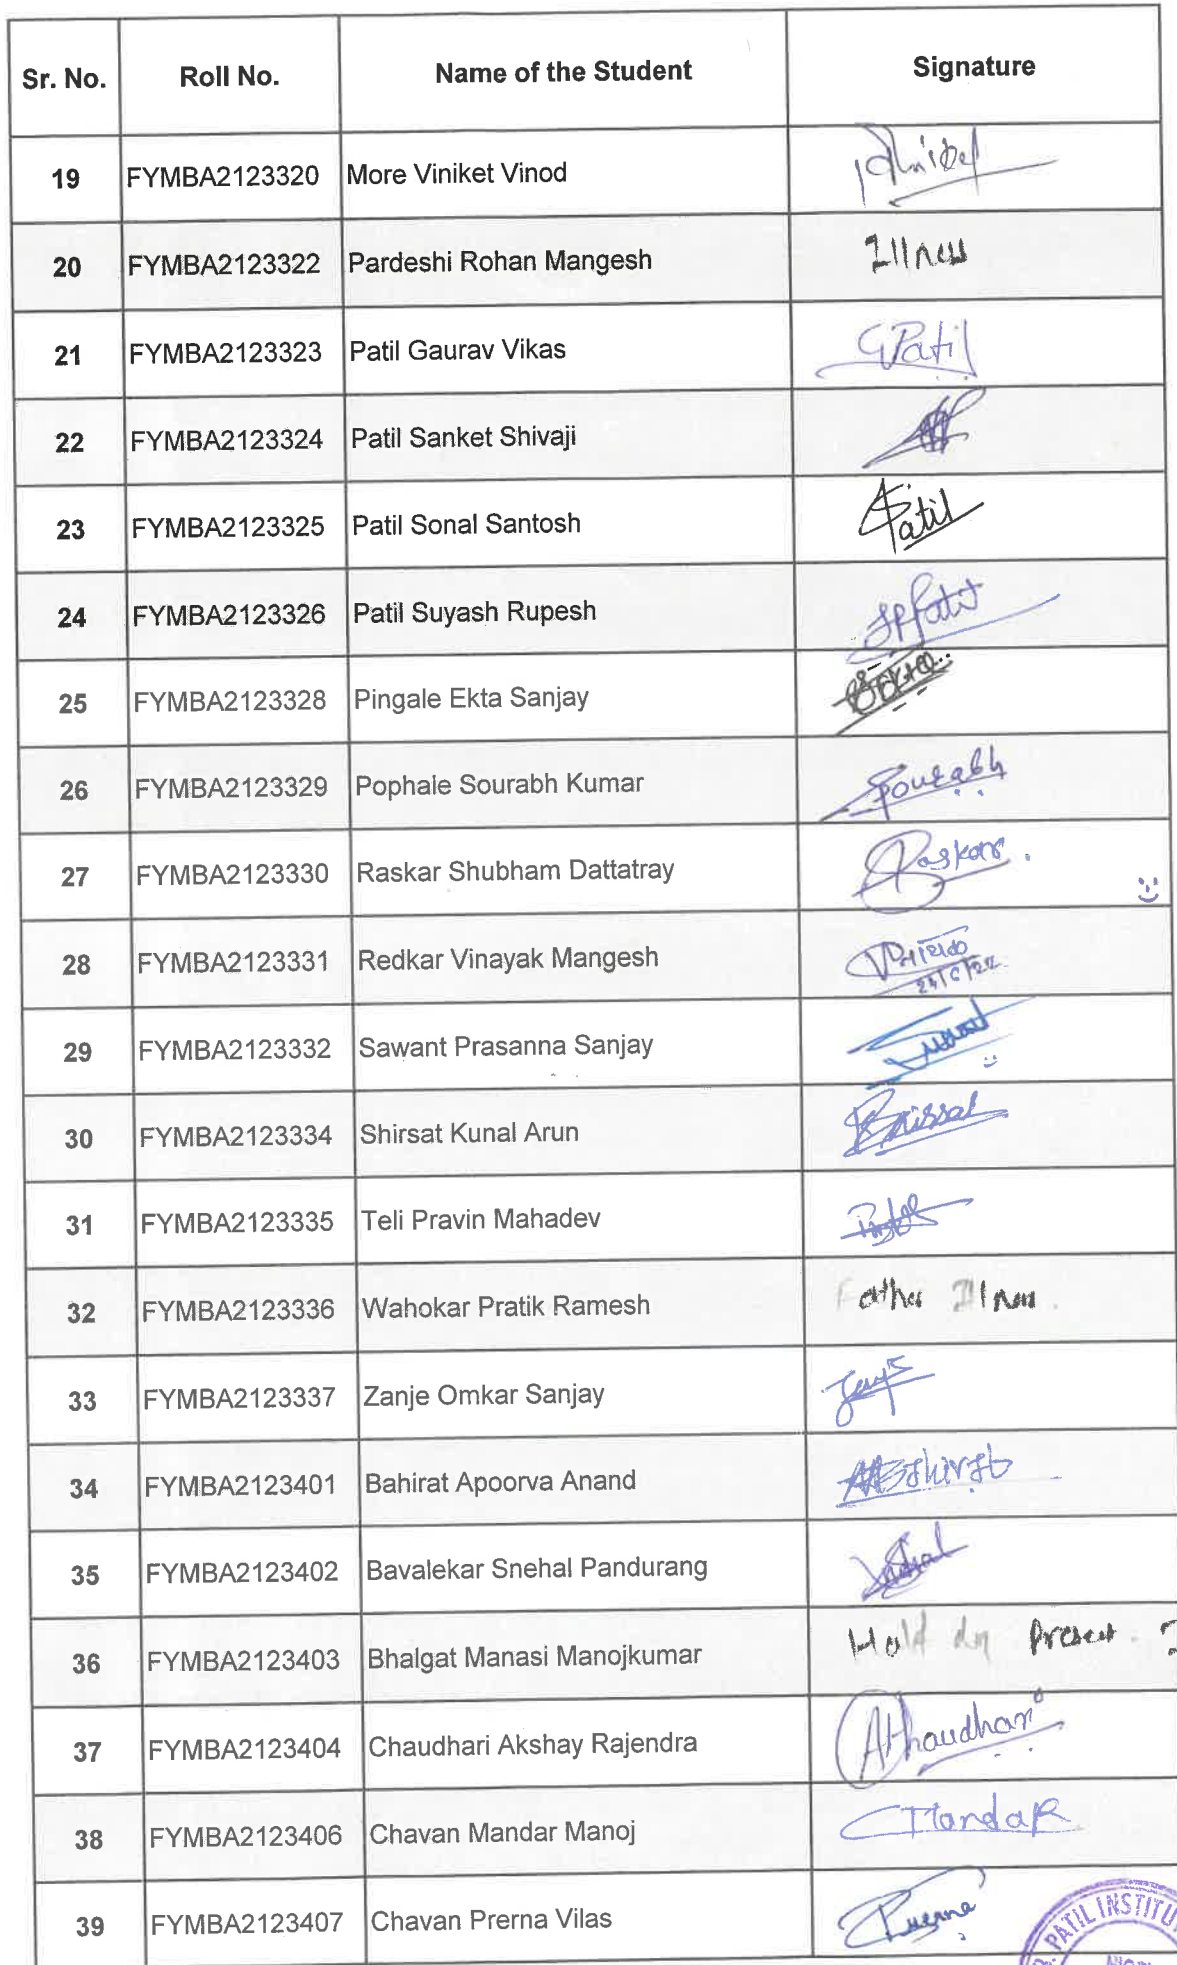 Sr. No. Roll No. Name of the Student Signature
19 FYMBA2123320 More Viniket Vinod
20 FYMBA2123322 Pardeshi Rohan Mangesh Illness
21 FYMBA2123323 Patil Gaurav Vikas GPatil
22 FYMBA2123324 Patil Sanket Shivaji
23 FYMBA2123325 Patil Sonal Santosh SPatil
24 FYMBA2123326 Patil Suyash Rupesh
25 FYMBA2123328 Pingale Ekta Sanjay
26 FYMBA2123329 Pophale Sourabh Kumar Sourabh
27 FYMBA2123330 Raskar Shubham Dattatray Raskar
28 FYMBA2123331 Redkar Vinayak Mangesh
29 FYMBA2123332 Sawant Prasanna Sanjay
30 FYMBA2123334 Shirsat Kunal Arun
31 FYMBA2123335 Teli Pravin Mahadev
32 FYMBA2123336 Wahokar Pratik Ramesh Father Illness
33 FYMBA2123337 Zanje Omkar Sanjay
34 FYMBA2123401 Bahirat Apoorva Anand
35 FYMBA2123402 Bavalekar Snehal Pandurang
36 FYMBA2123403 Bhalgat Manasi Manojkumar Present
37 FYMBA2123404 Chaudhari Akshay Rajendra AChaudhari
38 FYMBA2123406 Chavan Mandar Manoj Mandar
39 FYMBA2123407 Chavan Prerna Vilas Prerna
PATIL INSTITU